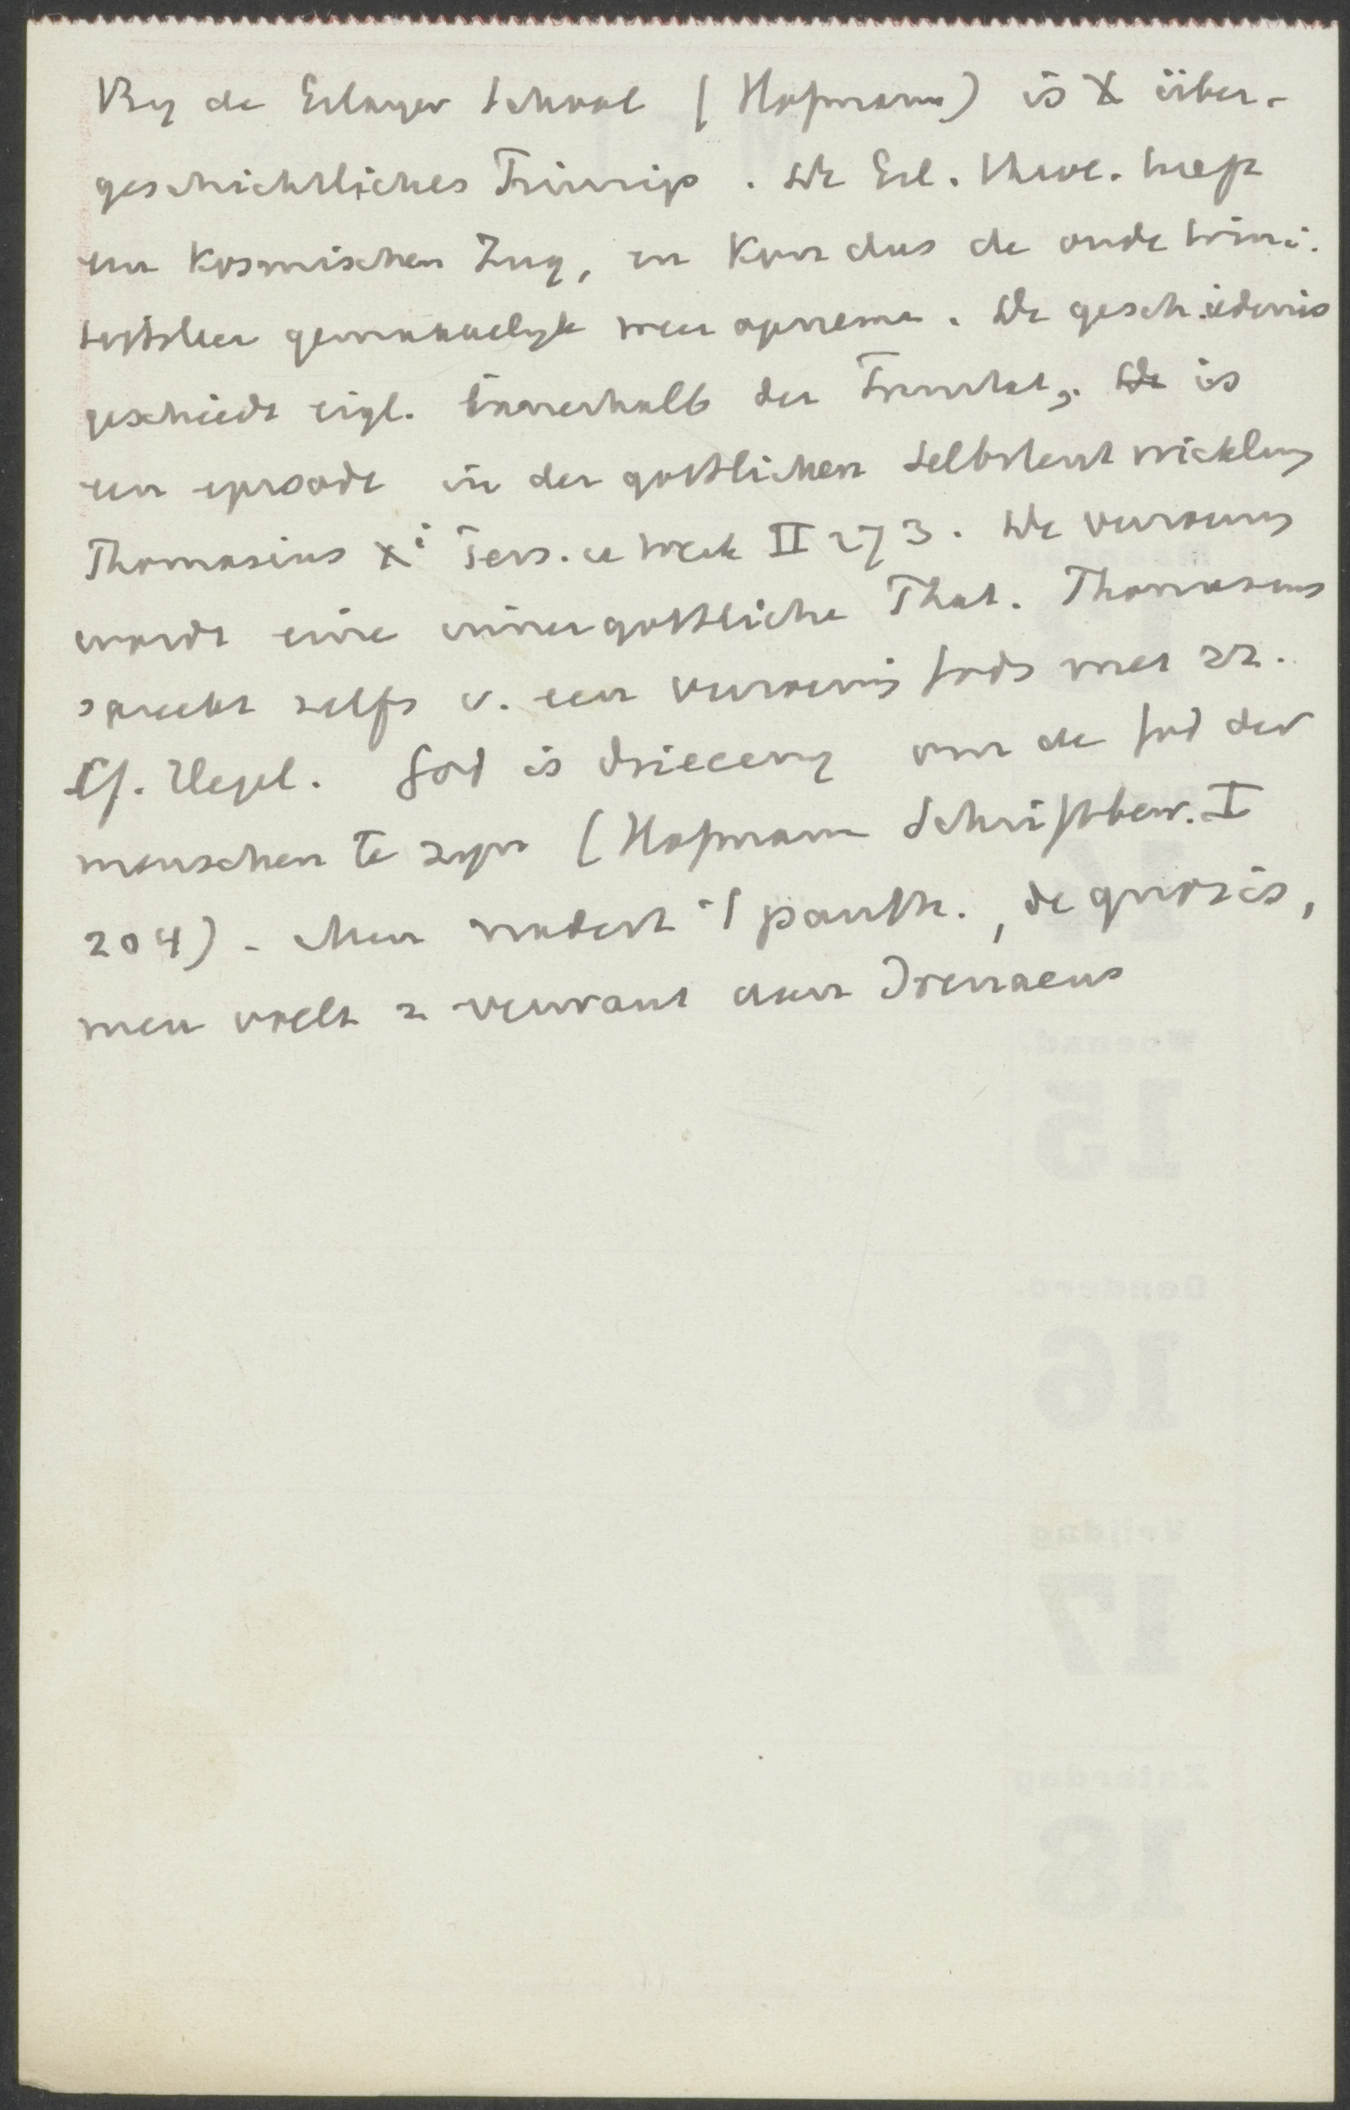 By de Erlanger School (Hofmann) is X über-
geschichtliches Prinzip. De Erl. theol. heeft
een kosmischen Zug, en kon dus de oude trini-
teitsleer gemakkelijk weer opnemen. De geschiedenis
geschiedt eigl. innerhalb der Trinitat, is
een episode in der gottlichen Selbstentwicklung
Thomasius Xi Pers. u Werk II 273. De verzoening
wordt eine innergottliche That. Thomasius
spreekt zelfs v. een verzoening Gods met zz.
Cf. Hegel. God is drieeenig om de God der
menschen te zijn (Hofmann Schriftbew. I
204) - Men nadert 't panth., de gnosis,
men voelt z verwant aan Irenaeus
Woensd.
15
Donderd.
16
Vrijdag
17
Zaterdag
18